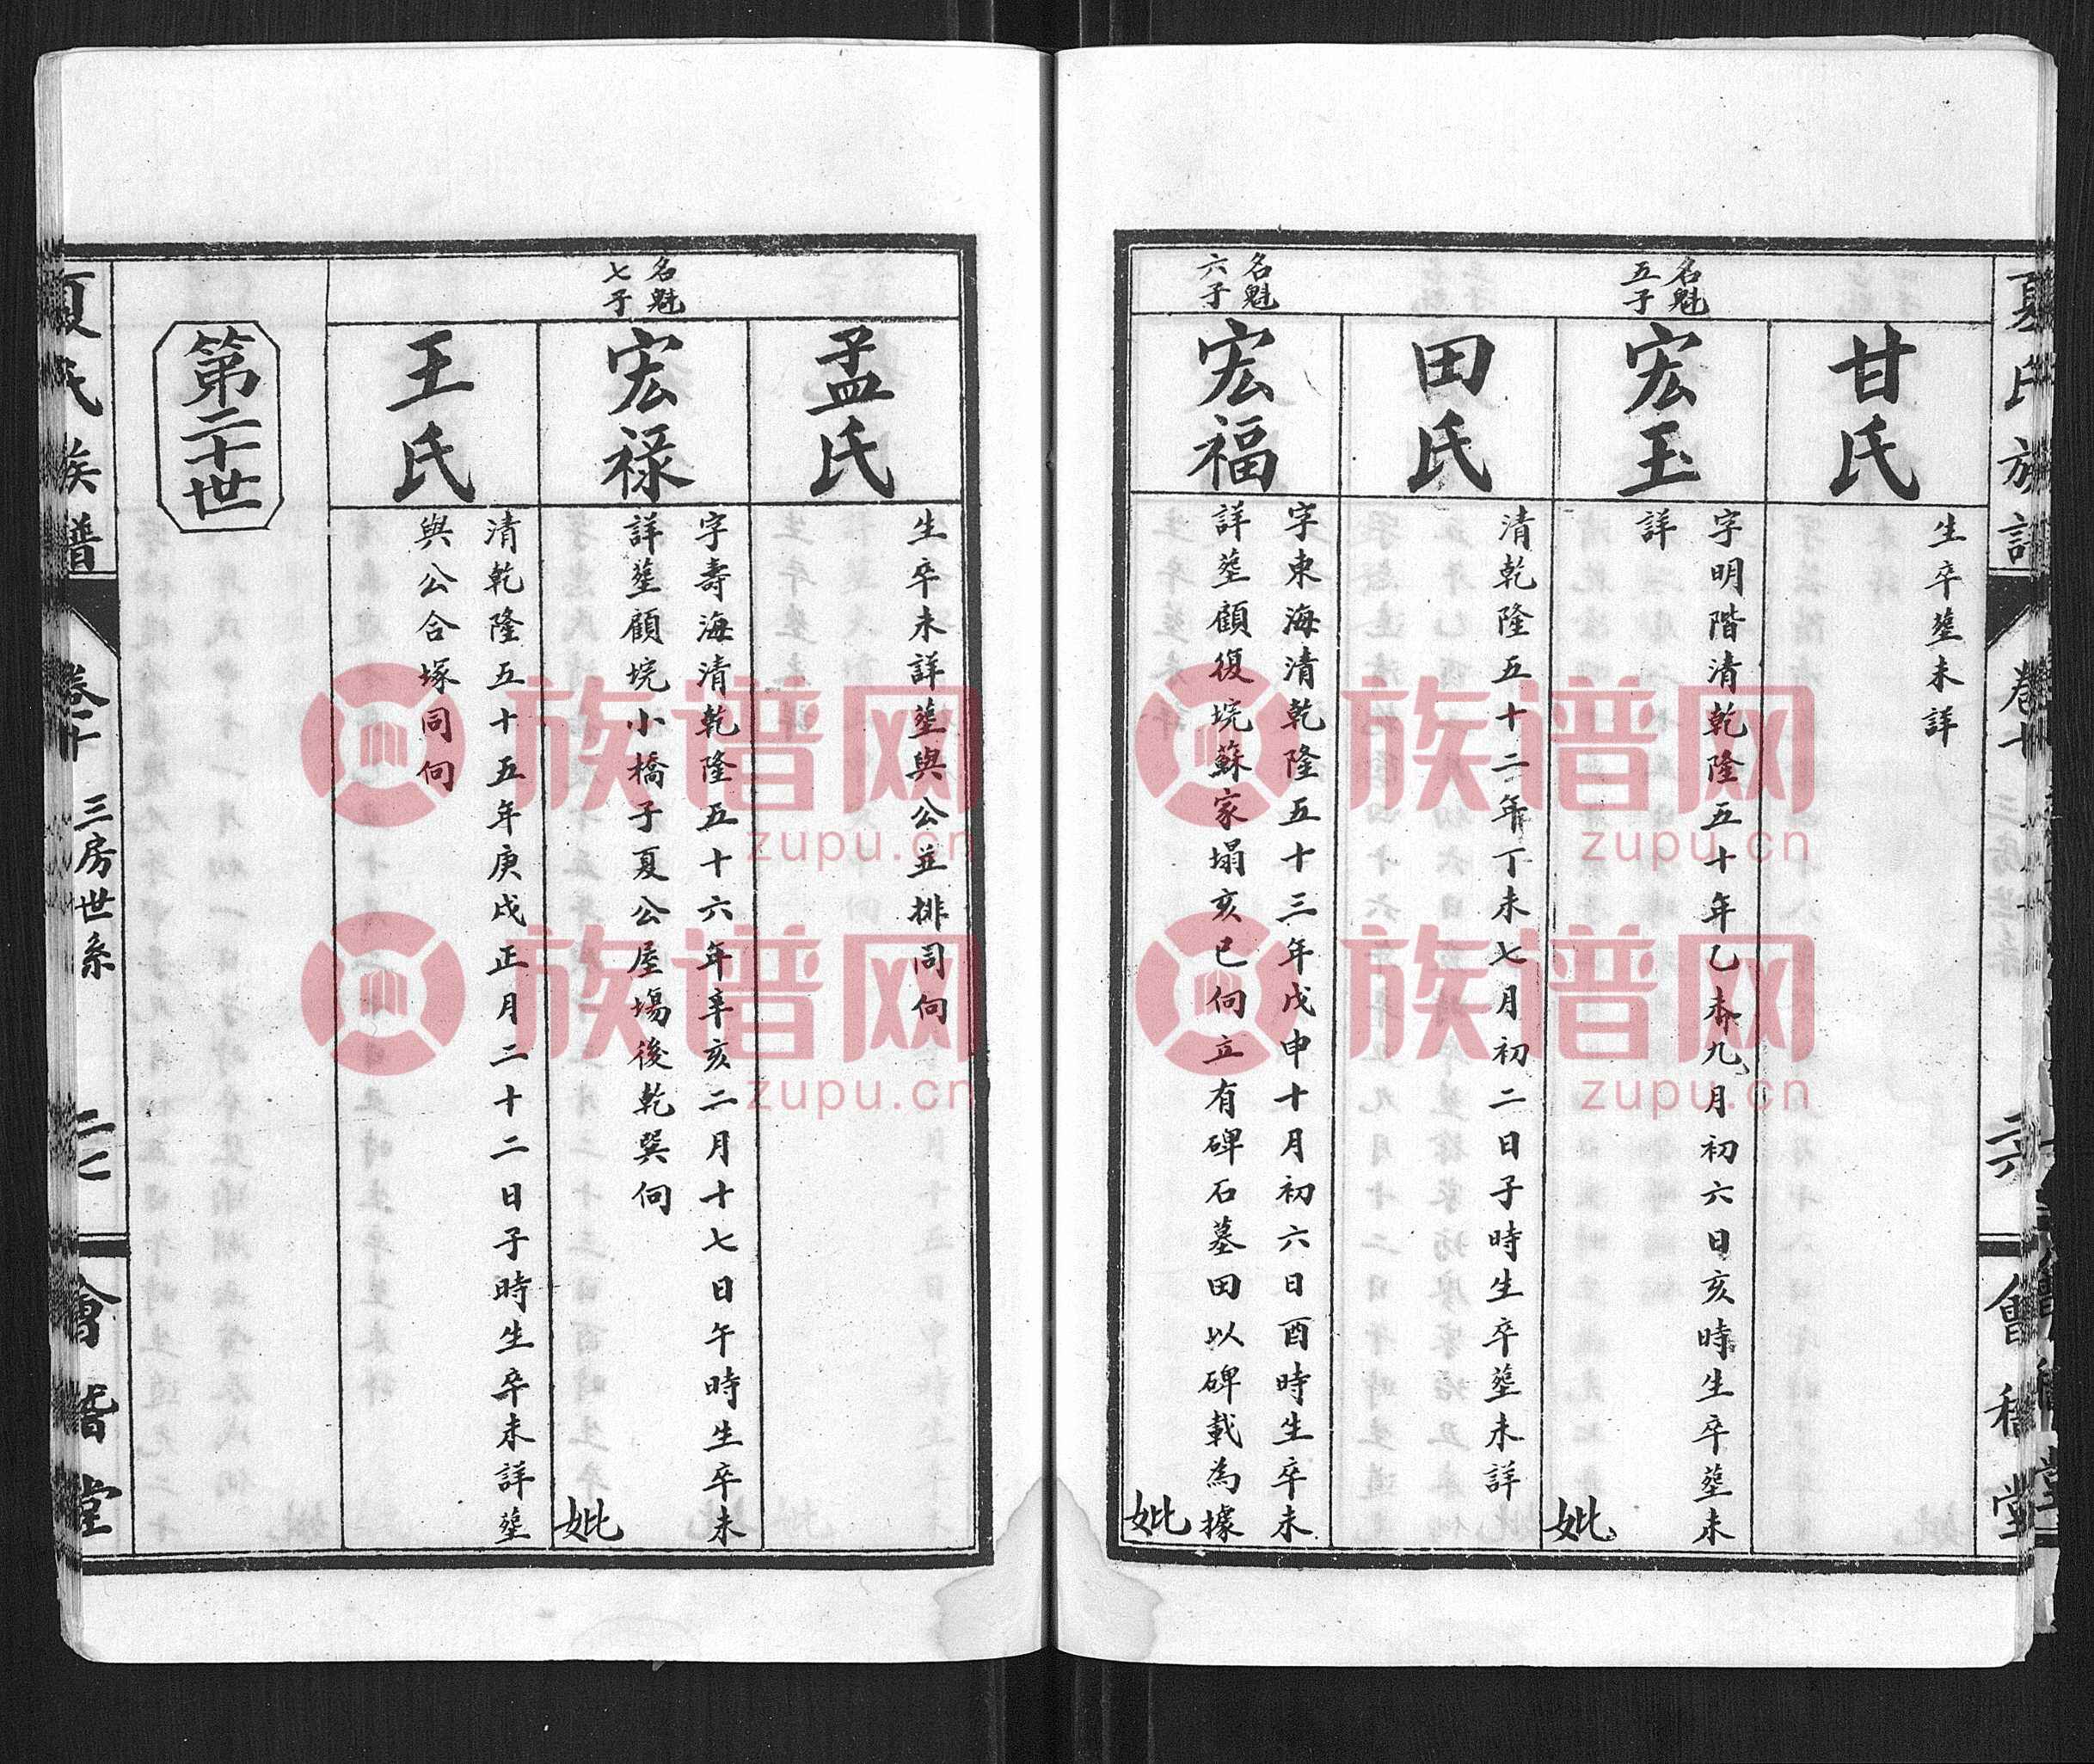 夏氏族譜
卷十
三房世系
會稽堂
甘氏
生卒塟未詳
名魁
五子
宏玉
字明階清乾隆五十年乙未九月初六日亥時生卒塟未
詳
妣
田氏
清乾隆五十二年丁未七月初二日子時生卒塟未詳
名魁
六子
宏福
字東海清乾隆五十三年戊申十月初六日酉時生卒未
詳塟顧復垸蘇家塌亥巳向立有碑石墓田以碑載為據
妣
孟氏
生卒未詳塟與公並排同向
名魁
七子
宏禄
字壽海清乾隆五十六年辛亥二月十七日午時生卒未
詳塟顧垸小橋子夏公屋塲後乾巽向
妣
王氏
清乾隆五十五年庚戌正月二十二日子時生卒未詳塟
與公合塚同向
第二十世
夏氏族譜
卷十
三房世系
二七
會稽堂
族谱网
zupu.cn
族谱网
zupu.cn
族谱网
zupu.cn
族谱网
zupu.cn